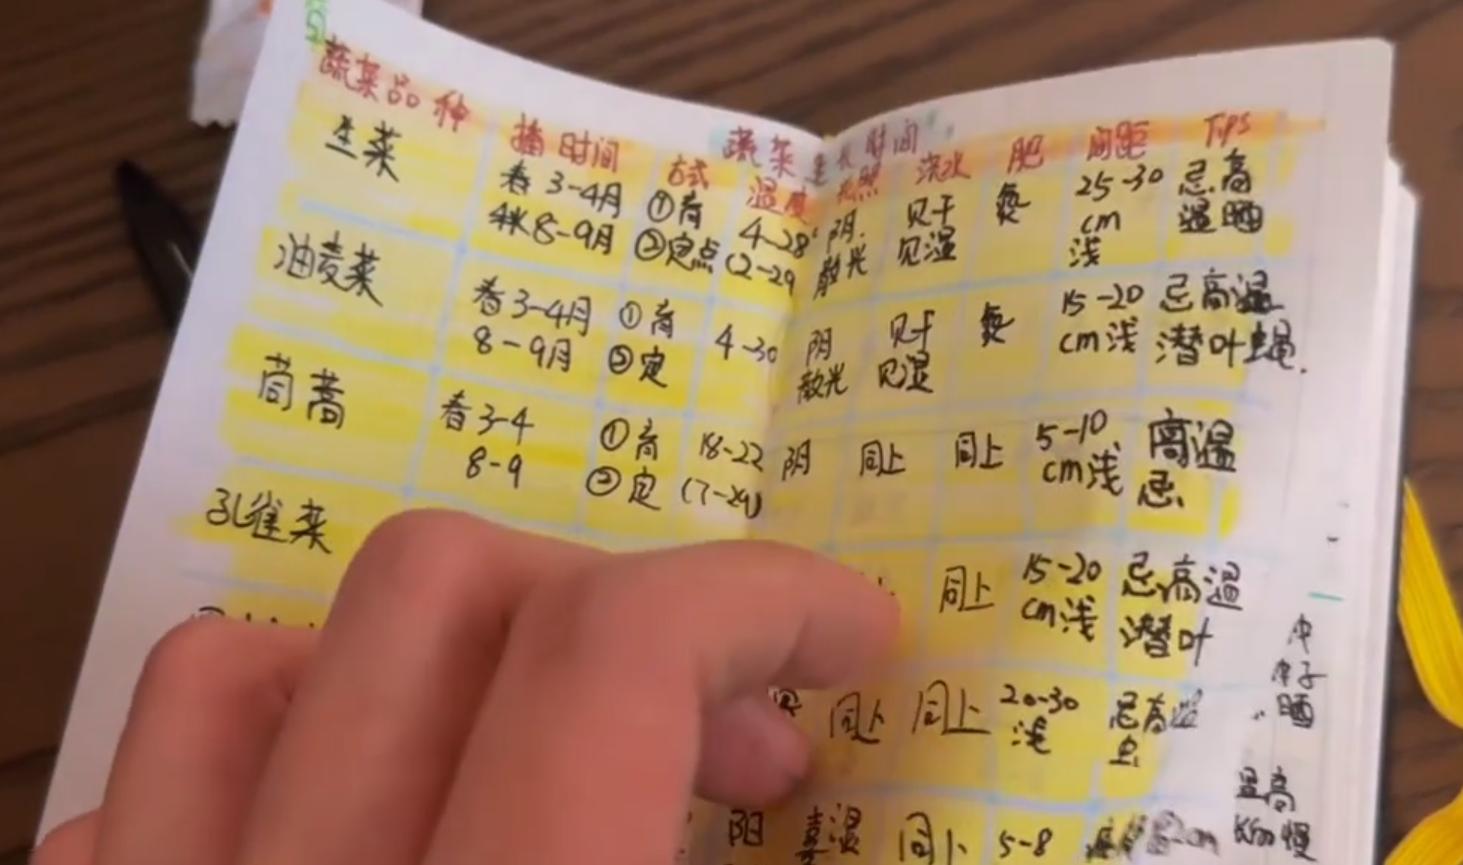 蔬菜品种 播时间 方式 温度 光照 浇水 肥 间距 Tips
蔬菜生长时间
生菜 春3-4月 ①育 4-28° 阴. 见干 氮 25-30 忌高
秋8-9月 ②定点 (2-29 散光 见湿 cm 温晒
浅
油麦菜 春3-4月 ①育 4-30 阴 见干 氮 15-20 忌高温
8-9月 ②定 散光 见湿 cm浅 潜叶蝇.
茼蒿 春3-4 ①育 18-22 阴 同上 同上 5-10 高温
8-9 ②定 (7-29) cm浅 忌
孔雀菜 同上 15-20 忌高温
cm浅 潜叶
同上 同上 20-30 忌高温
浅 虫
阳 喜湿 同上 5-8
晒